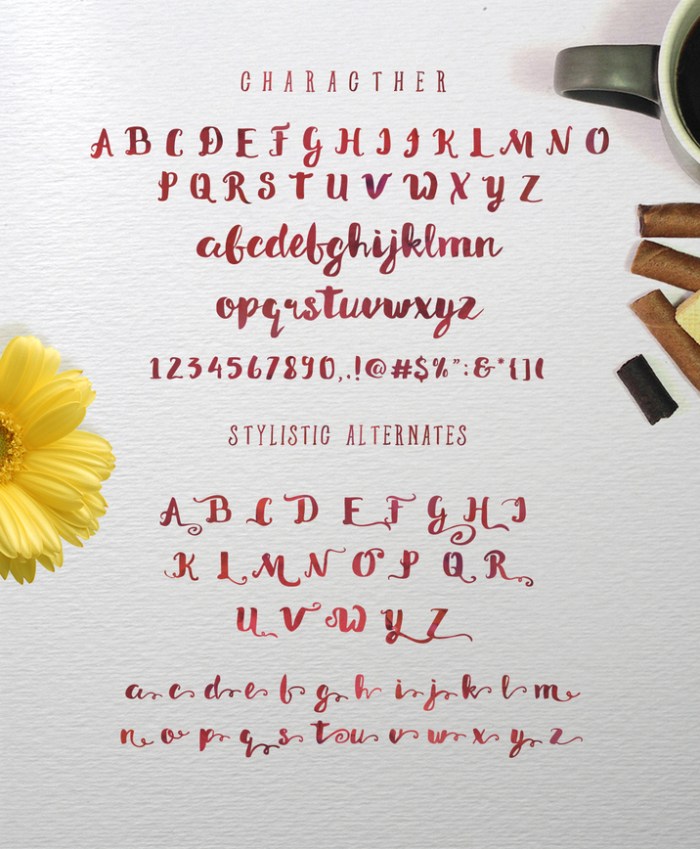 CHARACTHER
A B C D E F G H I J K L M N O
P Q R S T U V W X Y Z
abcdefghijklmn
opqrstuvwxyz
1234567890,.!@#$%":&*{}(
STYLISTIC ALTERNATES
A B C D E F G H I
K L M N O P Q R
U V W Y Z
a c d e f g h i j k l m
n o p q s t u v w x y z